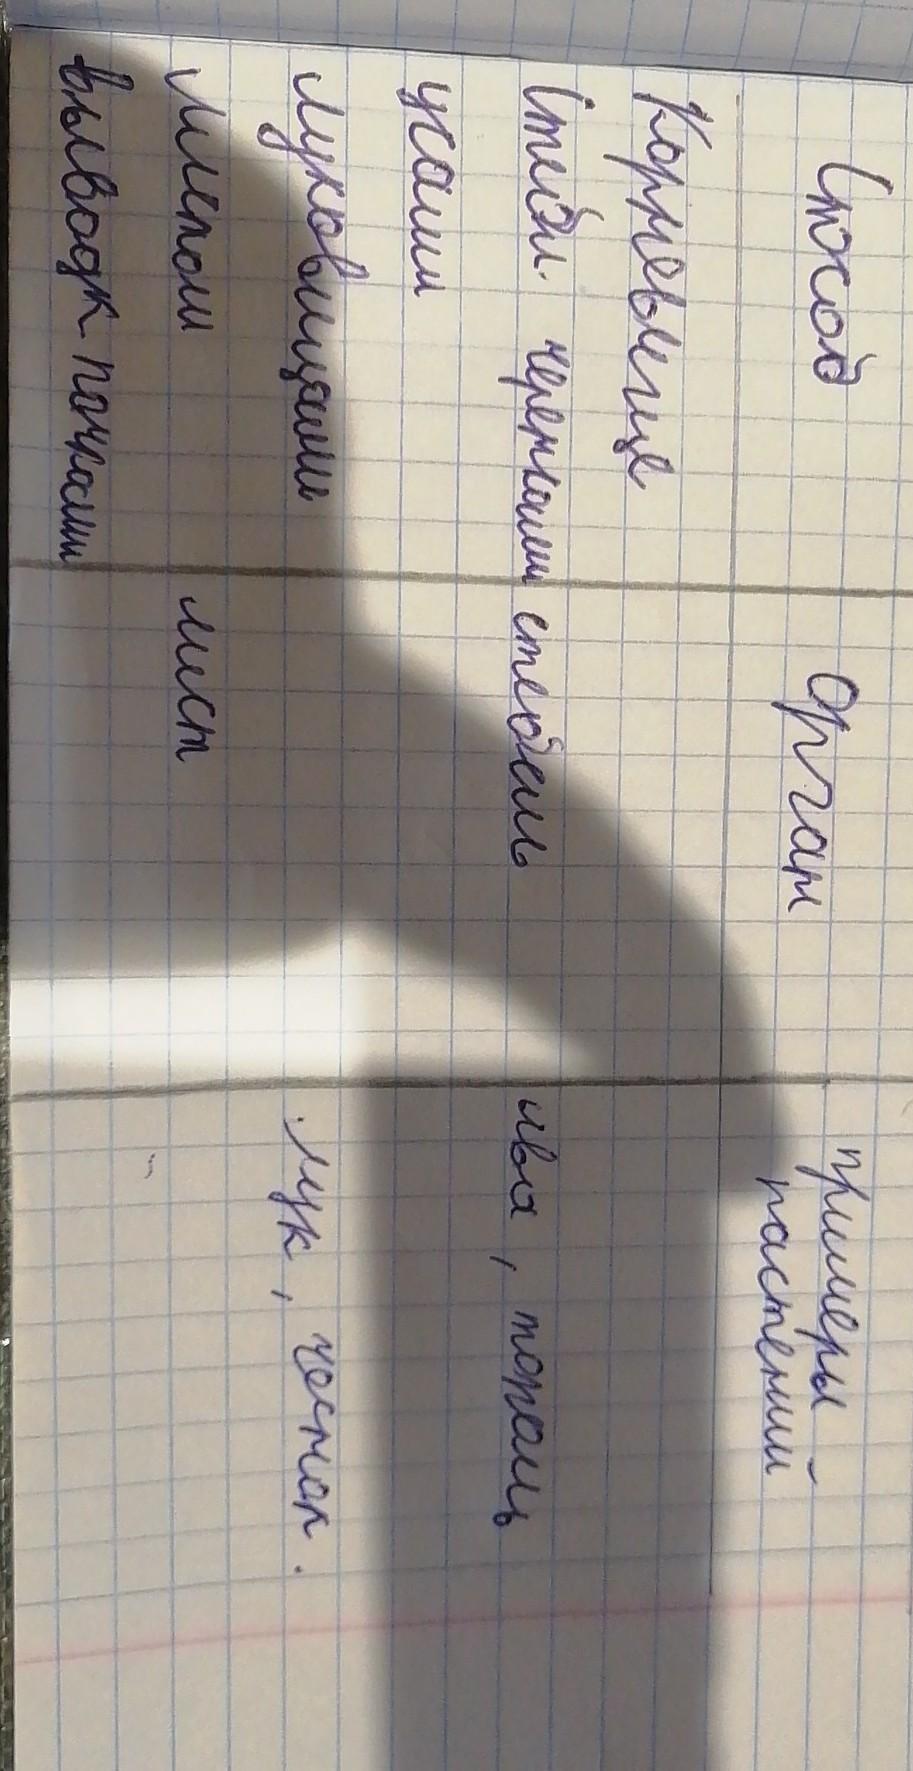 Способ Орган примеры
растений
Корневище
Стебл. черенками стебель ива, тополь
усами
луковицами лук, чеснок.
листом лист
выводк почками